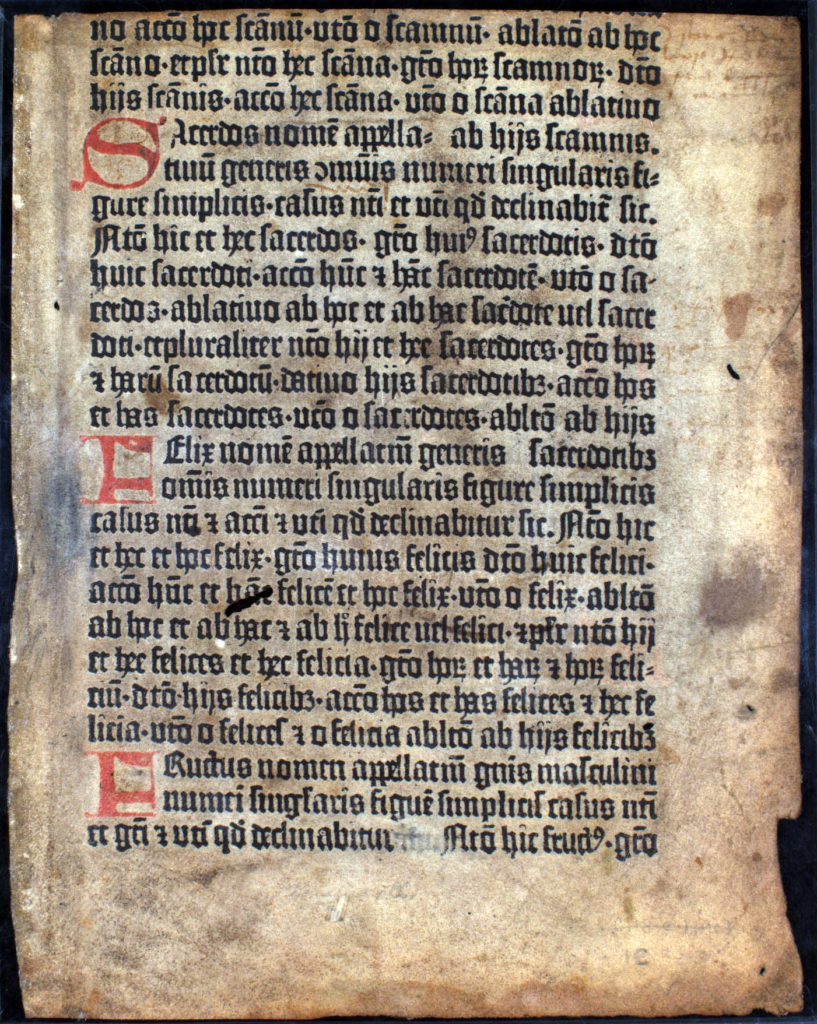 no accō hoc scānū·vtō o scamnū· ablatō ab hoc
scāno·etpłr ntō hec scāna·gtō hoꝝ scamnoꝝ·dtō
hijs scānis·accō hec scāna·vtō o scāna ablatiuo
SAcerdos nomē appella⸗ ab hijs scamnis.
tiuū generis ↄmūis numeri singularis fi⸗
gure simplicis·casus nti et vti qđ declinabit̄ sic.
Ntō hic et hec sacerdos· gtō huiꝰ sacerdotis·dtō
huic sacerdoti·accō hūc ⁊ hāc sacerdotē·vtō o sa⸗
cerdoꝫ·ablatiuo ab hoc et ab hac sac̄dote uel sacer
doti·etpluraliter ntō hij et hee sacerdotes·gtō hoꝝ
⁊ harū sacerdotū·datiuo hijs sacerdotibꝫ·accō hos
et has sacerdotes·vtō o sacerdotes·abltō ab hijs
FElix nomē appellatiū generis sacerdotibꝫ
omīs numeri singularis figure simplicis
casus nti ⁊ acci ⁊ vti qđ declinabitur sic. Ntō hic
et hec et hoc felix·gtō huius felicis dtō huic felici·
accō hūc et hāc felicē et hoc felix·vtō o felix·abltō
ab hoc et ab hac ⁊ ab ħ felice uel felici·⁊płr ntō hij
et hee felices et hec felicia·gtō hoꝝ et haꝝ ⁊ hoꝝ feli⸗
ciū·dtō·hijs felicibꝫ·accō hos et has felices ⁊ hec fe
licia·vtō o felices ⁊ o felicia abltō ab hijs felicibꝫ
FRuctus nomen appellatiū gn̄is masculini
numeri singlaris figur̄e simplicis casus nti
et gti ⁊ vti qđ declinabitur Ntō hic fructꝰ·gtō